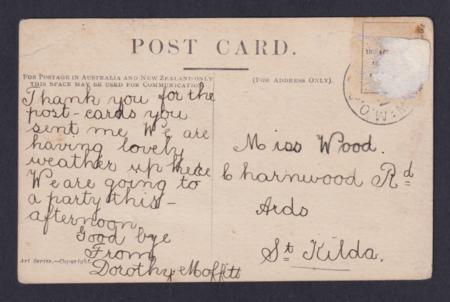 POST CARD.
FOR POSTAGE IN AUSTRALIA AND NEW ZEALAND ONLY
THIS SPACE MAY BE USED FOR COMMUNICATION
(FOR ADDRESS ONLY).
Thank you for the
post-cards you
sent me. We are
having lovely
weather up these
We are going to
a party this-
afternoon.
Good bye
From
Dorothy Moffitt
Art Series.—Copyright.
Miss Wood.
Charnwood Rd
Ards
St Kilda.